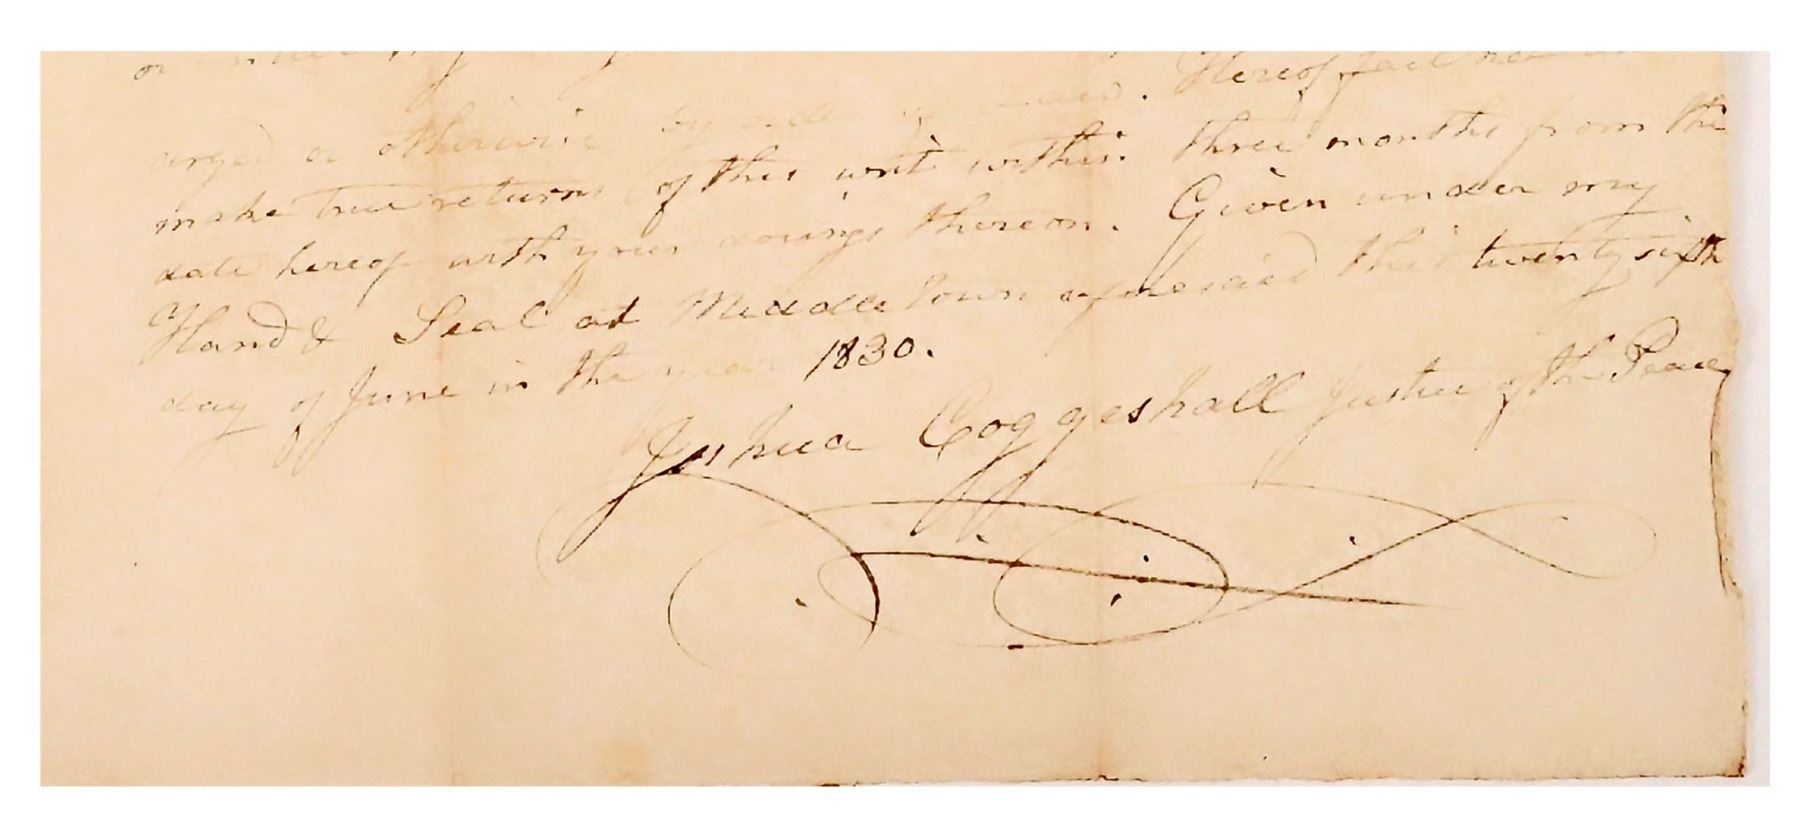 or under my
arged or otherwise by order of Law. Hereof fail not and
make true return of this writ within three months from the
date hereof with your doings thereon. Given under my
Hand & Seal at Middletown aforesaid this twenty sixth
day of June in the year 1830.
Joshua Coggeshall Justice of the Peace